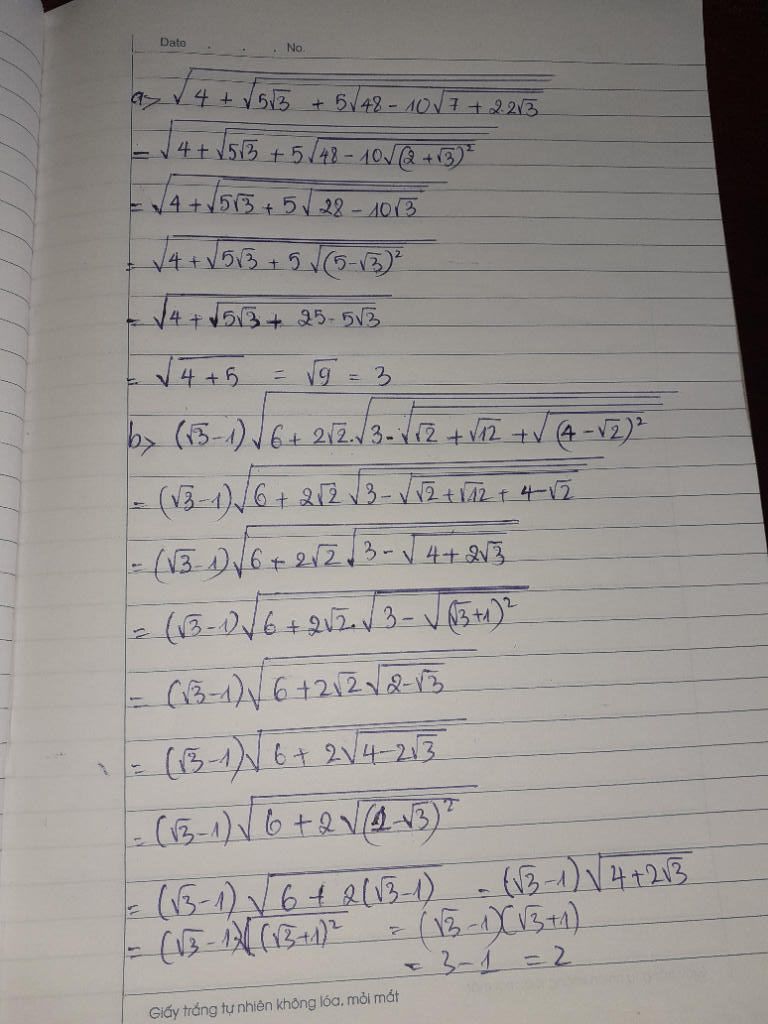 Date . . . No.
a> √(4 + √(5√3 + 5√(48 - 10√(7 + 2.2√3))))
= √(4 + √(5√3 + 5√(48 - 10√((2 + √3)²))))
= √(4 + √(5√3 + 5√(28 - 10√3)))
= √(4 + √(5√3 + 5√((5-√3)²)))
= √(4 + √(5√3 + 25 - 5√3))
= √(4 + 5) = √9 = 3
b> (√3 - 1)√(6 + 2√2.√(3 - √(√2 + √12 + √((4 - √2)²))))
= (√3 - 1)√(6 + 2√2√(3 - √(√2 + √12 + 4 - √2)))
= (√3 - 1)√(6 + 2√2√(3 - √(4 + 2√3)))
= (√3 - 1)√(6 + 2√2.√(3 - √((√3+1)²)))
= (√3 - 1)√(6 + 2√2√(2-√3))
= (√3 - 1)√(6 + 2√(4 - 2√3))
= (√3 - 1)√(6 + 2√((1-√3)²))
= (√3 - 1)√(6 + 2(√3-1)) = (√3 - 1)√(4 + 2√3)
= (√3 - 1)√((√3+1)²) = (√3 - 1)(√3+1)
= 3 - 1 = 2
Giấy trắng tự nhiên không lóa, mỏi mắt